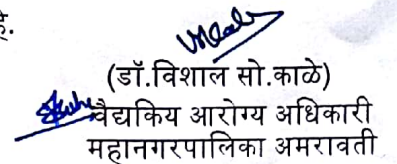 है.
(डॉ.विशाल सो.काळे)
वैद्यकिय आरोग्य अधिकारी
महानगरपालिका अमरावती